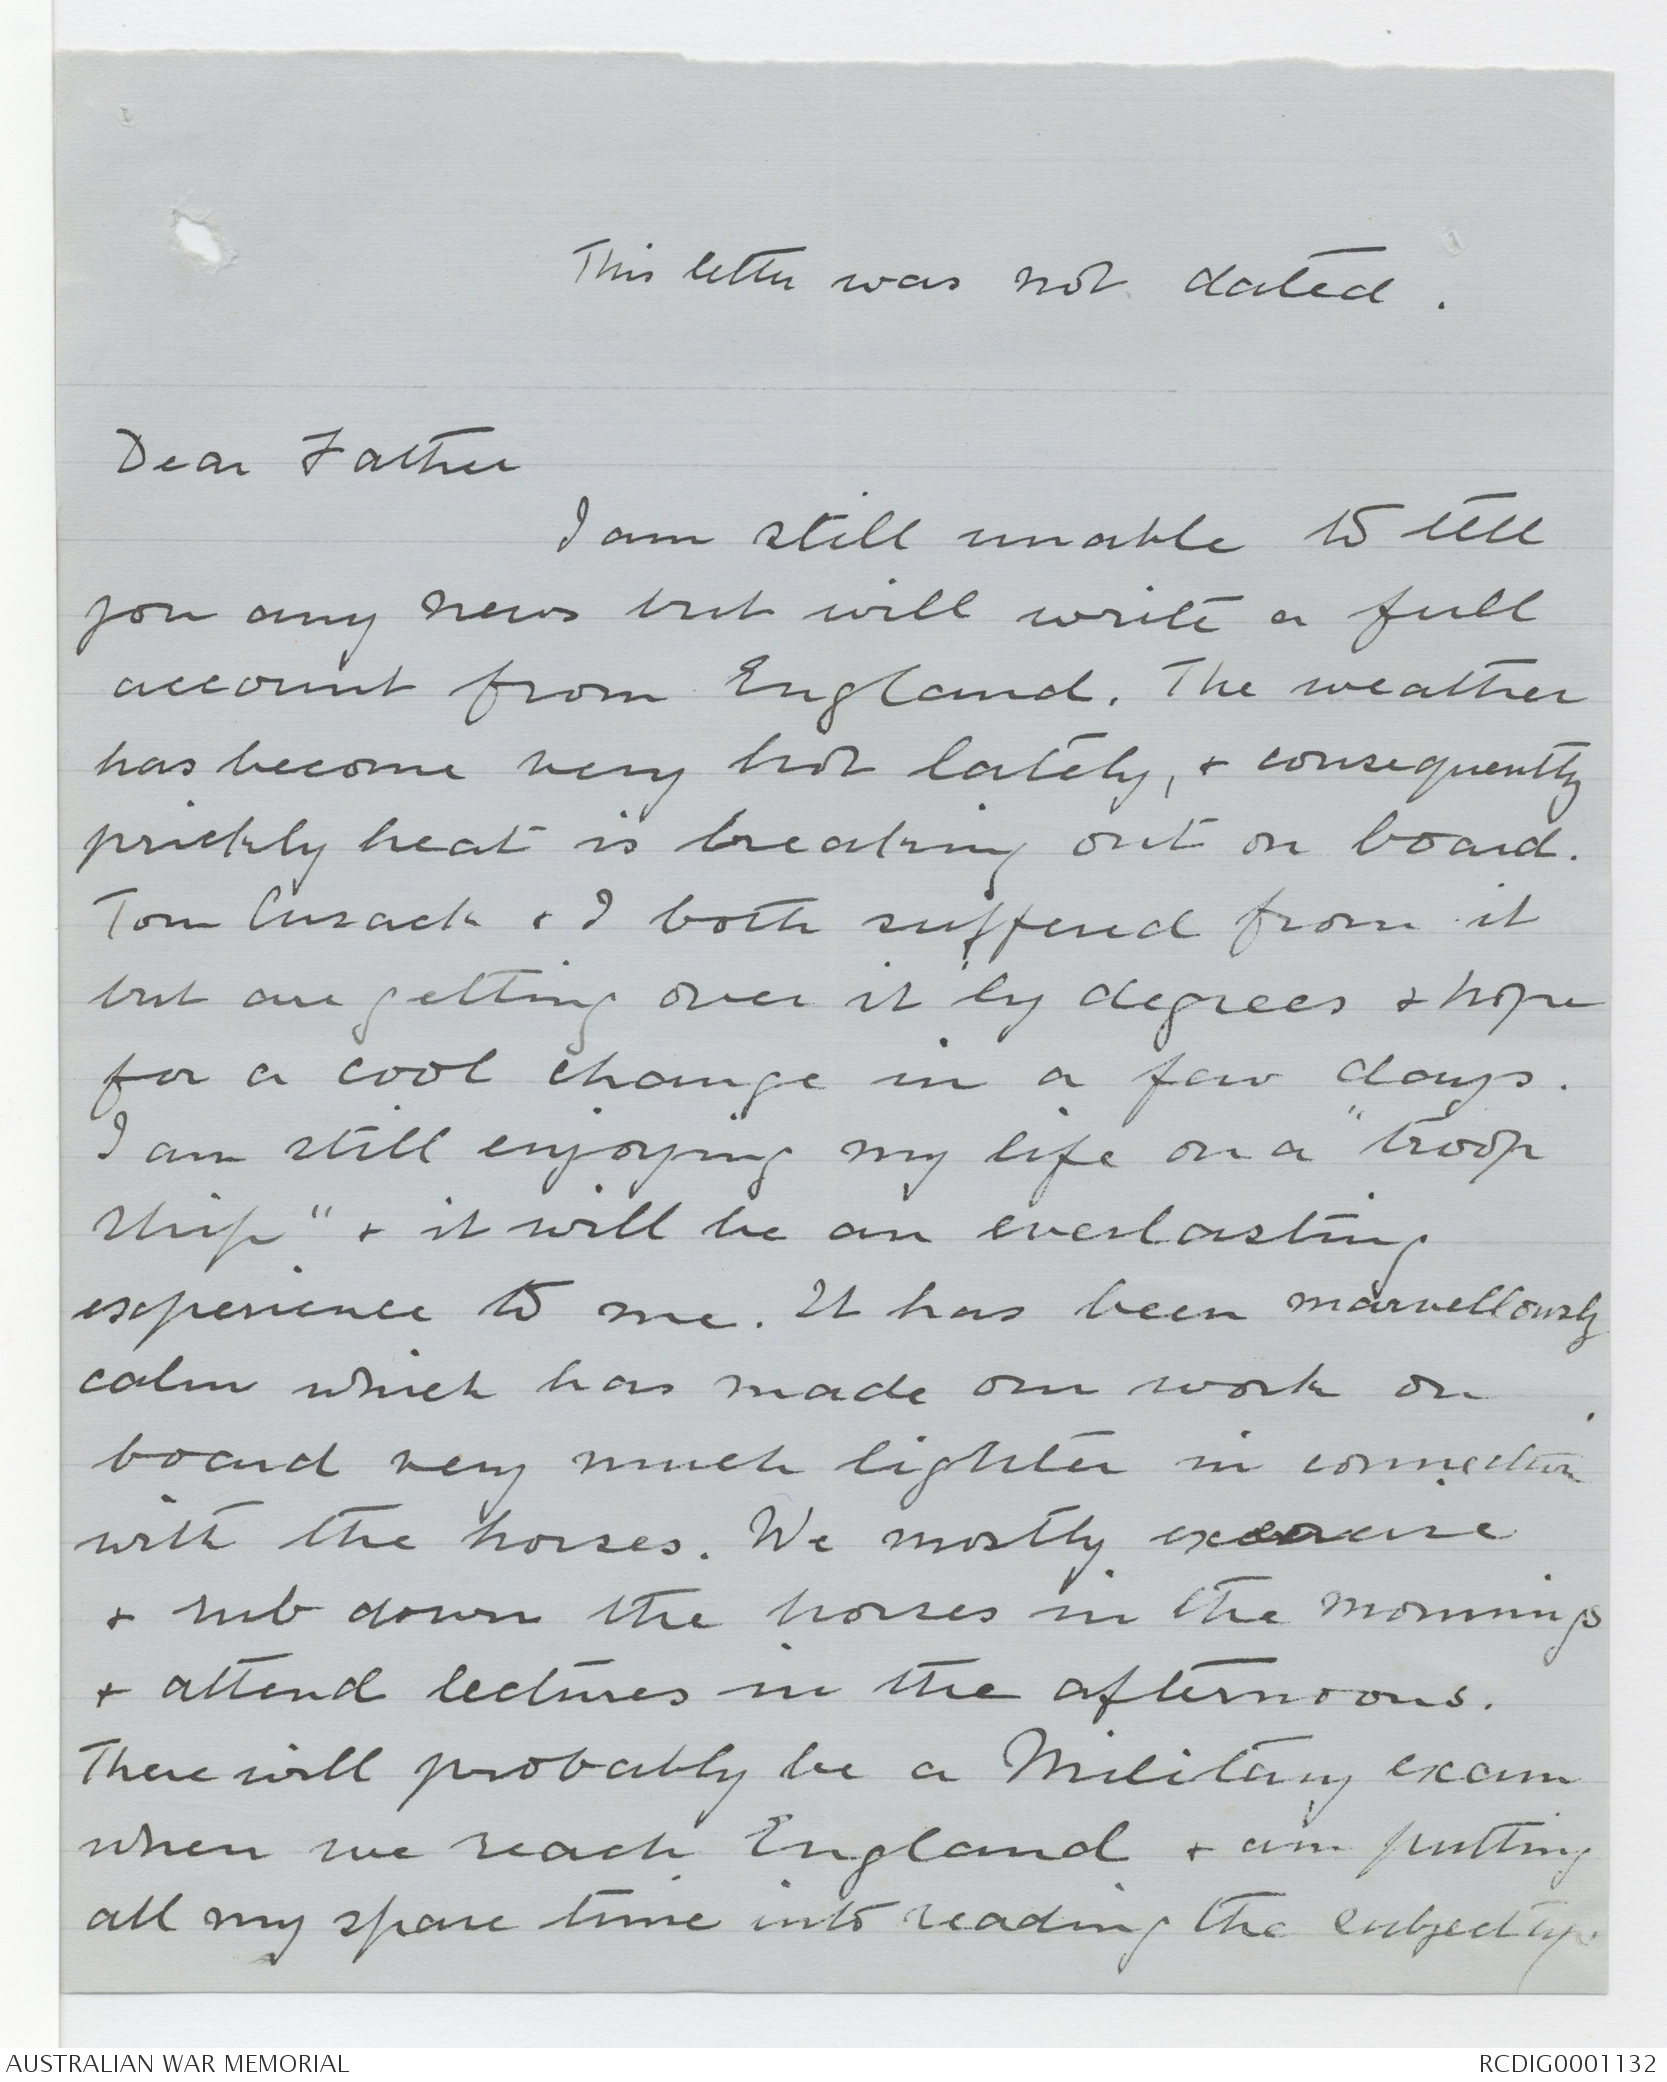 This letter was not dated.
Dear Father
I am still unable to tell
you any news but will write a full
account from England. The weather
has become very hot lately, + consequently
prickly heat is breaking out on board.
Tom Cusack + I both suffered from it
but are getting over it by degrees + hope
for a cool change in a few days.
I am still enjoying my life on a "troop
ship" + it will be an everlasting
experience to me. It has been marvellously
calm which has made our work on
board very much lighter in connection
with the horses. We mostly exercise
+ rub down the horses in the mornings
+ attend lectures in the afternoons.
There will probably be a Military exam
when we reach England + am putting
all my spare time into reading the
AUSTRALIAN WAR MEMORIAL
RCDIG0001132